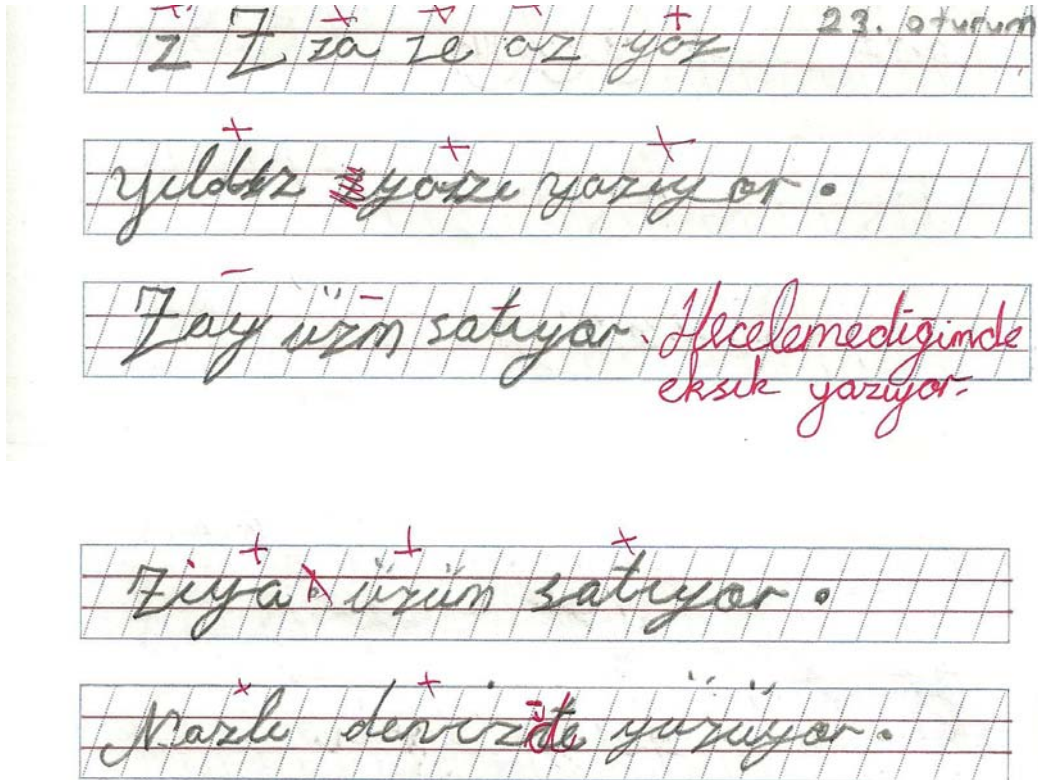 z Z za ze az yaz 23. oturum
yıldız yazı yazıyor.
Zay üzm satıyor. Hecelemediğimde
eksik yazıyor.
Ziya üzüm satıyor.
Nazlı denizde yüzüyor.